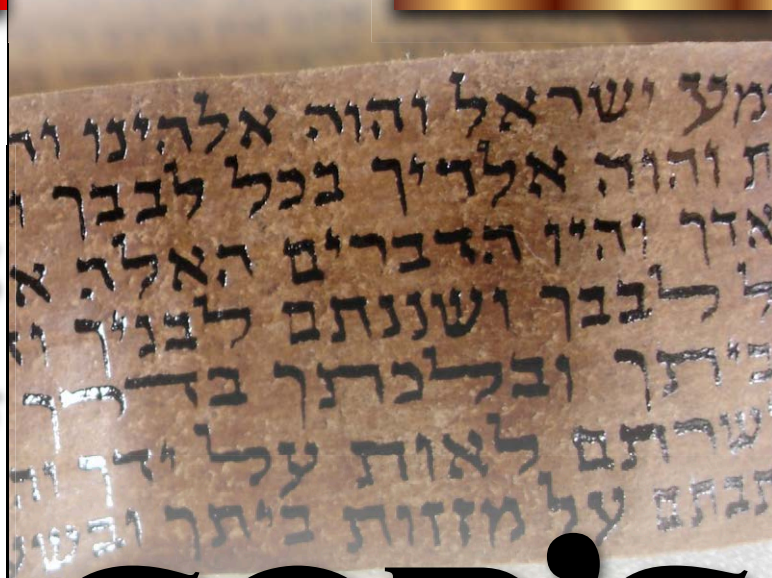 מע ישראל יהוה אלהינו
ת יהוה אלהיך בכל לבבך
אדך והיו הדברים האלה
לבבך ושננתם לבניך
ביתך ובלכתך בדרך
שרתם לאות על ידך
תבתם על מזזות ביתך ובש